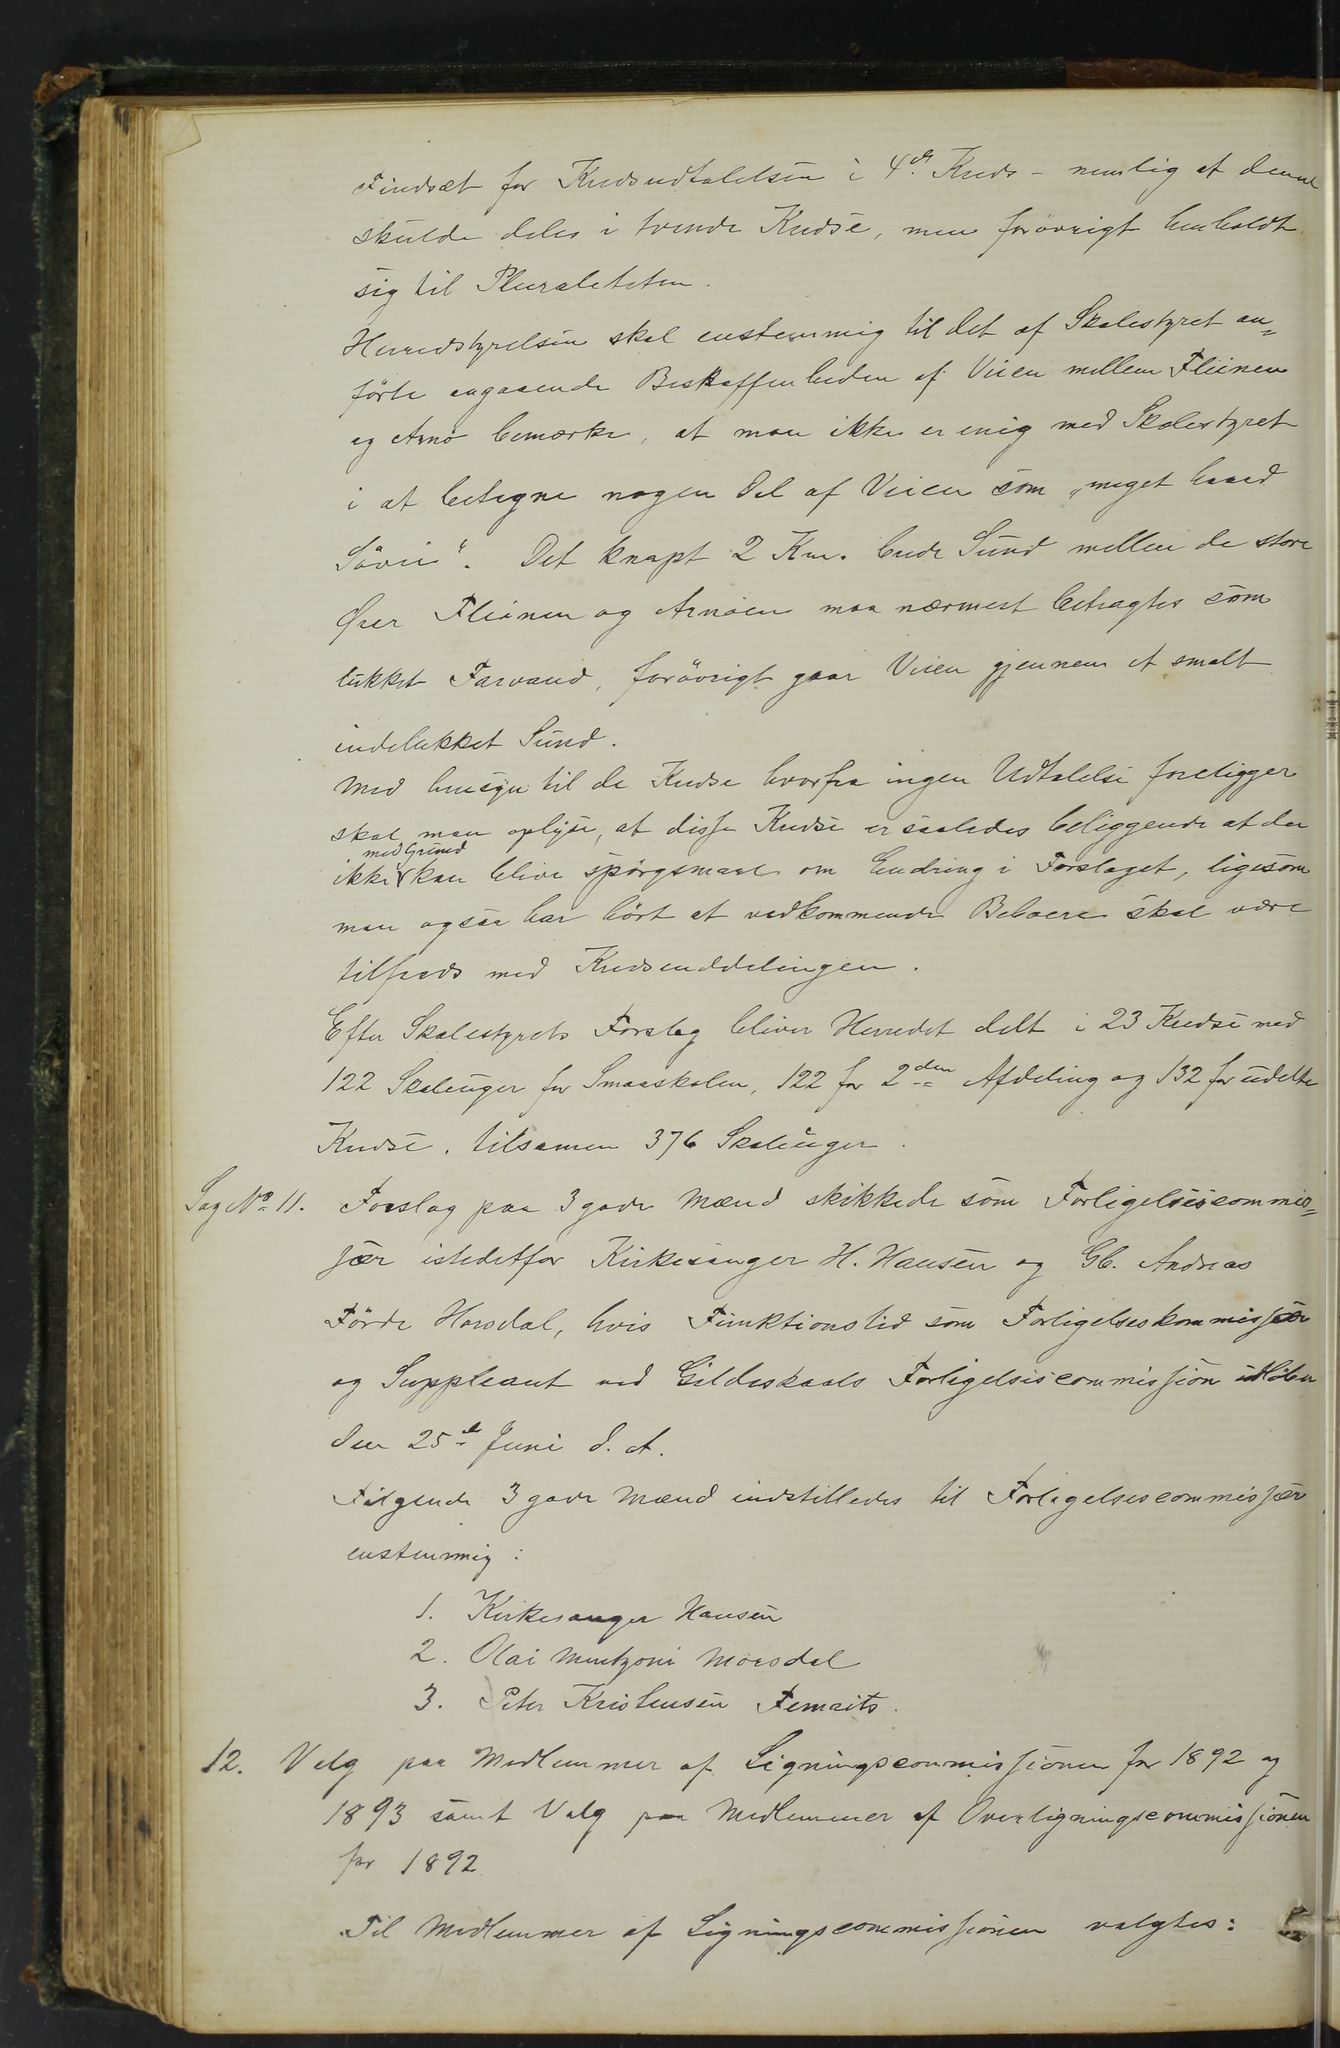 Findsæt for Kredsudtalelsen i 4de Kreds - nemlig at denne
skulde deles i tvende Kredse, men forøvrigt henholdt
sig til Pluraliteten.
Herredstyrelsen skal enstemmig til det af Skolestyret an=
førte angaaende Beskaffenheden af Veien mellem Fleinen
og Arnø bemærke, at man ikke er enig med Skolestyret
i at betegne nogen Del af Veien som „meget haard
Søvei“. Det knapt 2 Km. brede Sund mellem de store
Øer Fleinen og Arnøen maa nærmest betragtes som
lukket Farvand, forøvrigt gaar Veien gjennem et smalt
indelukket Sund.
Med hensyn til de Kredse hvorfra ingen Udtalelse foreligger
skal man oplyse, at disse Kredse er saaledes beliggende at der
ikke med Grund kan blive spørgsmaal om Endring i Forslaget, ligesom
man ogsaa har hørt at vedkommende Beboere skal være
tilfreds med Kredsinddelingen.
Efter Skolestyrets Forslag bliver Herredet delt i 23 Kredse med
122 Skoleuger for Smaaskolen, 122 for 2den Afdeling og 132 for udelte
Kredse, tilsamen 376 Skoleuger.
Sag No 11. Forslag paa 3 gode Mænd skikkede som Forligelsescommis=
sær istedetfor Kirkesanger H. Hansen og Gb. Andreas
Førde Horsdal, hvis Funktionstid som Forligelseskommissær
og Suppleant ved Gildeskaals Forligelsescommission udløber
den 25de Juni d. A.
Følgende 3 gode Mænd indstilledes til Forligelsescommissær
enstemmig:
1. Kirkesanger Hansen
2. Olai Mentzoni Morsdal
3. Peter Kristensen Femris
12. Valg paa Medlemmer af Ligningscommissionen for 1892 og
1893 samt Valg paa Medlemmer af Overligningscommissionen
for 1892
Til Medlemmer af Ligningscommissionen valgtes: